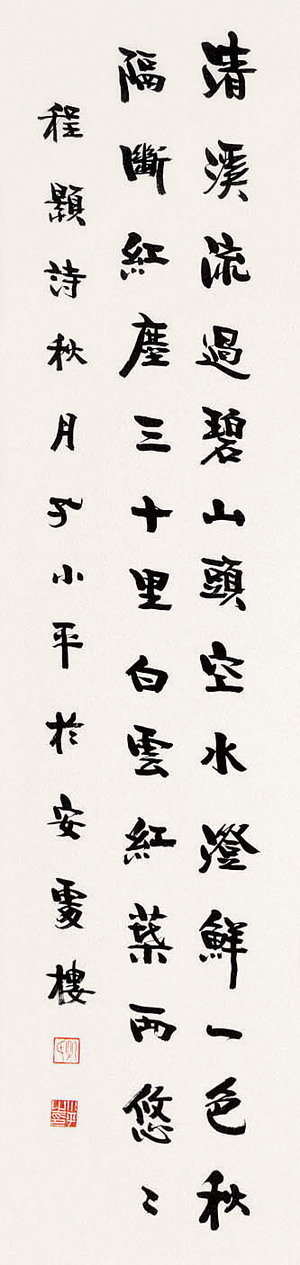 清溪流過碧山頭空水澄鮮一色秋
隔斷紅塵三十里白雲紅葉兩悠〻
程顥詩秋月小平於安樓